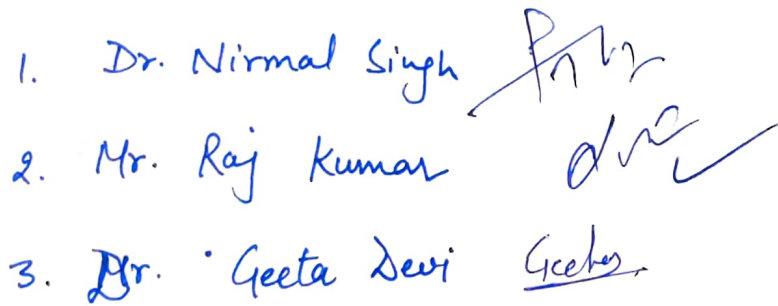 1. Dr. Nirmal Singh
2. Mr. Raj Kumar
3. Dr. Geeta Devi Geeta